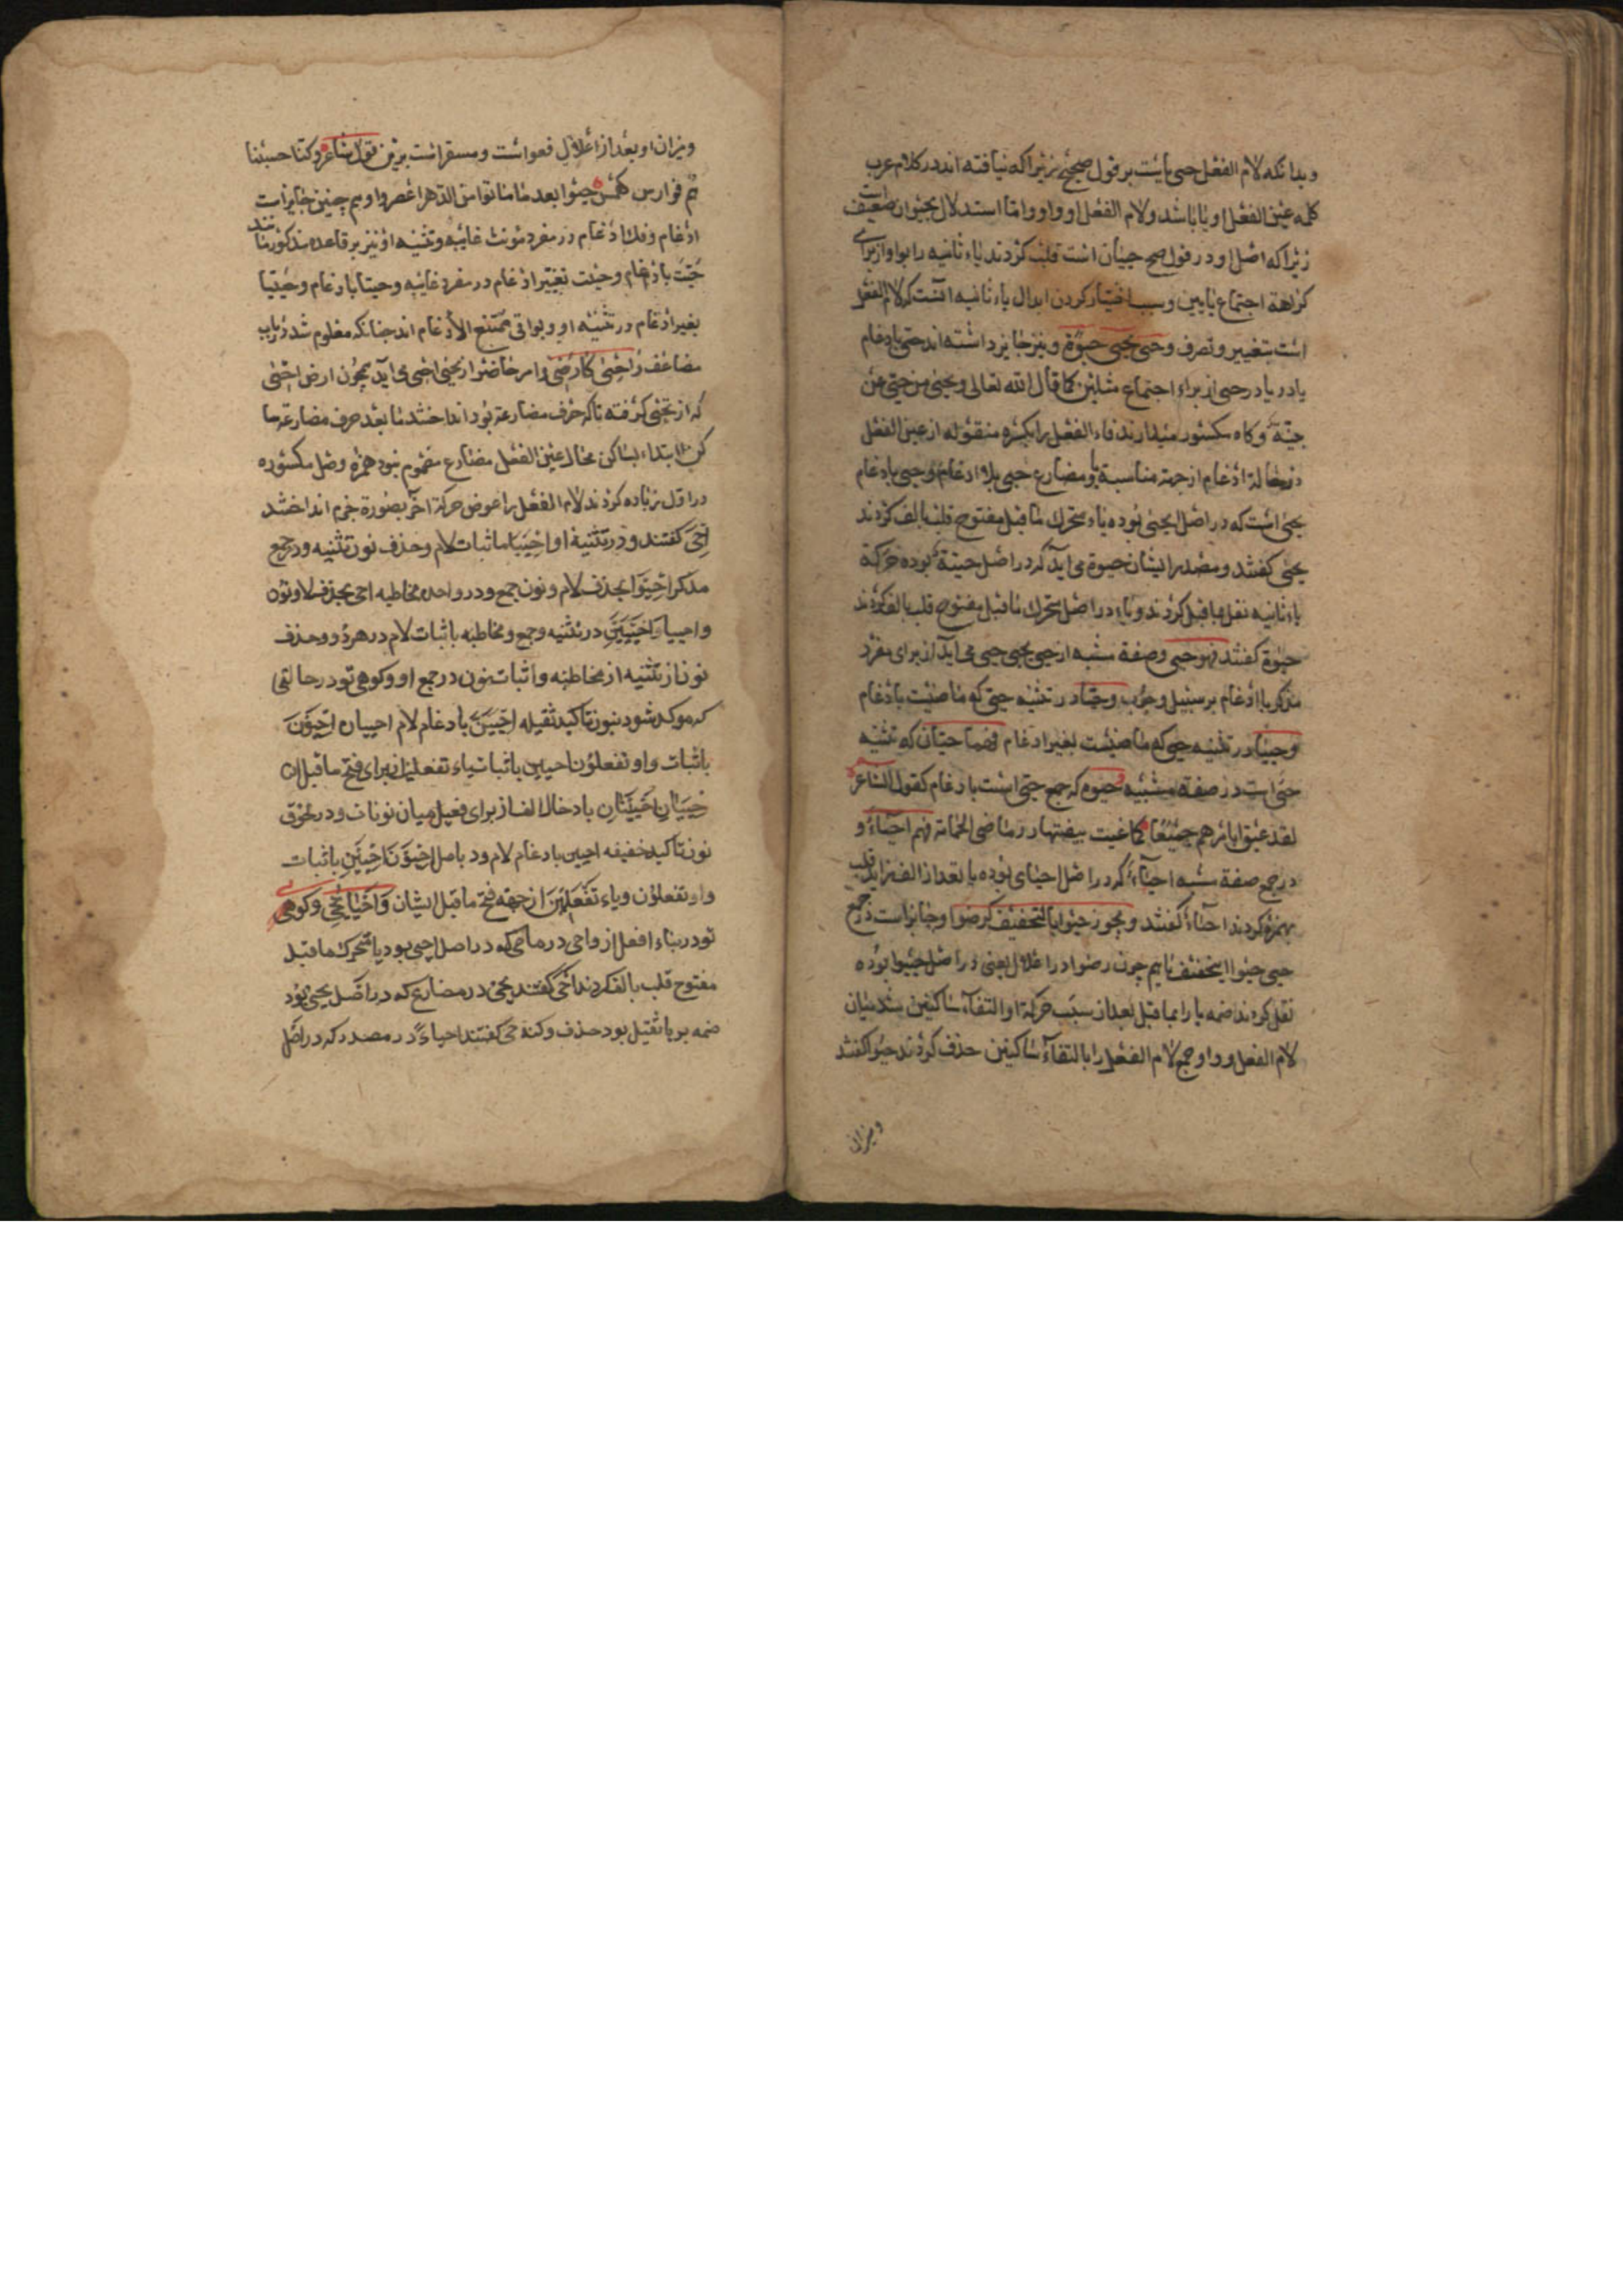 و بدانکه لام الفعل حیی یا یست بر قول صحیح زیرا که نیافته اند در کلام عرب
کلمه عین الفعل او یا باشد و لام الفعل او واو و اما استدلال بحیوان ضعیف است
زیرا که اصل او در قول صح حییان است قلب کردند یاء ثانیه را بواو از برای
کراهة اجتماع یایین و سبب اختیار کردن ابدال یاء ثانیه آنست که لام الفعل
است بتغییر و تصرف و حیی یحیی حیوة و نیز جایز داشته اند حی بادغام
یا در یا در حیی از براء اجتماع مثلین کما قال الله تعالی و یحیی من حی عن
بینة و کاه مکسور میدارند فاء الفعل را بکسره منقوله از عین الفعل
در حالة ادغام از جهة مناسبة یا و مضارع حیی بلا ادغام و حی بادغام
یحیی است که در اصل یحیی بوده یاء متحرک ماقبل مفتوح قلب بالف کردند
یحیی کفتند و مصدر ایشان حیوة می آید که در اصل حییة بوده حرکة
یاء ثانیه نقل بماقبل کردند و یاء در اصل متحرک ماقبل مفتوح قلب بالف کردند
حیوة کفتند فهو حی و صفة مشبه از حیی یحیی حی می آید از برای مفرد
مذکر با ادغام بر سبیل وجوب و حیا در تثنیه حی که ماضیست بادغام
و حییا در تثنیه حیی که ماضیست بغیر ادغام فهما حیان که تثنیه
حی است در صفة مشبیه و حیوا که جمع حی است بادغام کقول الشاعر
درجمع صفة مشبه احیاء که در اصل احیای بوده یا بعد از الف زاید قلب
بهمزه کردند احیاء کفتند و یجوز حیوا بالتخفیف کرضوا و جایز است در جمع
حیی حیوا بتخفیف یا هم چون رضوا در اعلال یعنی در اصل حییوا بوده
نقل کردند ضمه یا را بماقبل بعد از سبب حرکة او التقاء ساکنین شد میان
لام الفعل و واو جمع لام الفعل را بالتقاء ساکنین حذف کردند حیوا کفتند
و میزان
و میزان او بعد از اعلال فعوا است و مستقر است برین قول شاعر و کنا حسبنا
هم فوارس کهمس حیوا بعد ما ماتوا من الدهر اعصرا و هم چنین جایز است
ادغام و فک ادغام در مفرد مونث غایبه و تثنیه او نیز بر قاعده مذکور مانند
حیت بادغام و حییت بغیر ادغام در مفرد غایبه و حیتا بادغام و حییتا
بغیر ادغام در تثنیه او و بواقی ممتنع الادغام اند چنانکه معلوم شد در باب
مضاعف و احیی کارضی و امر حاضر از یحیی احی می آید همچون ارض
که از تحیی کرفته تا که حرف مضارعة بود انداختند ما بعد حرف مضارعة سا
کن ابتداء بساکن محال عین الفعل مضارع مضموم نبود همزه وصل مکسوره
در اول زیاده کردند لام الفعل را عوض حرکة آخر بصورة جزم انداختند
احی کفتند و در تثنیة او احییا باثبات لام و حذف نون تثنیه و در جمع
مذکر احیوا بحذف لام و نون جمع و در واحده مخاطبه احی بحذف لام و نون
و احییا و احیین در تثنیه و جمع و مخاطبه باثبات لام در هر دو و حذف
نون از تثنیه از مخاطبه و اثبات نون در جمع او و کوهی تو در حالتی
که موکد شود بنون تاکید ثقیله احیین بادغام لام احییان احیون
باثبات واو تفعلون احیین باثبات یاء تفعلین از برای فتح ماقبل ان
احییان احیینان بادخال الف از برای فصل میان نونات و در لحوق
نون تاکید خفیفه احیین بادغام لام احیون احیین باثبات
واو تفعلون و یاء تفعلین از جهة فتح ماقبل ایشان و احیا یحیی و کوهی
تو در بناء افعل از و احیی در ماضی که در اصل احیی بود یا متحرک ماقبل
مفتوح قلب بالف کردند احیی کفتند یحیی در مضارع که در اصل یحیی بود
ضمه بر یا ثقیل بود حذف کفتند احیاء در مصدر که در اصل